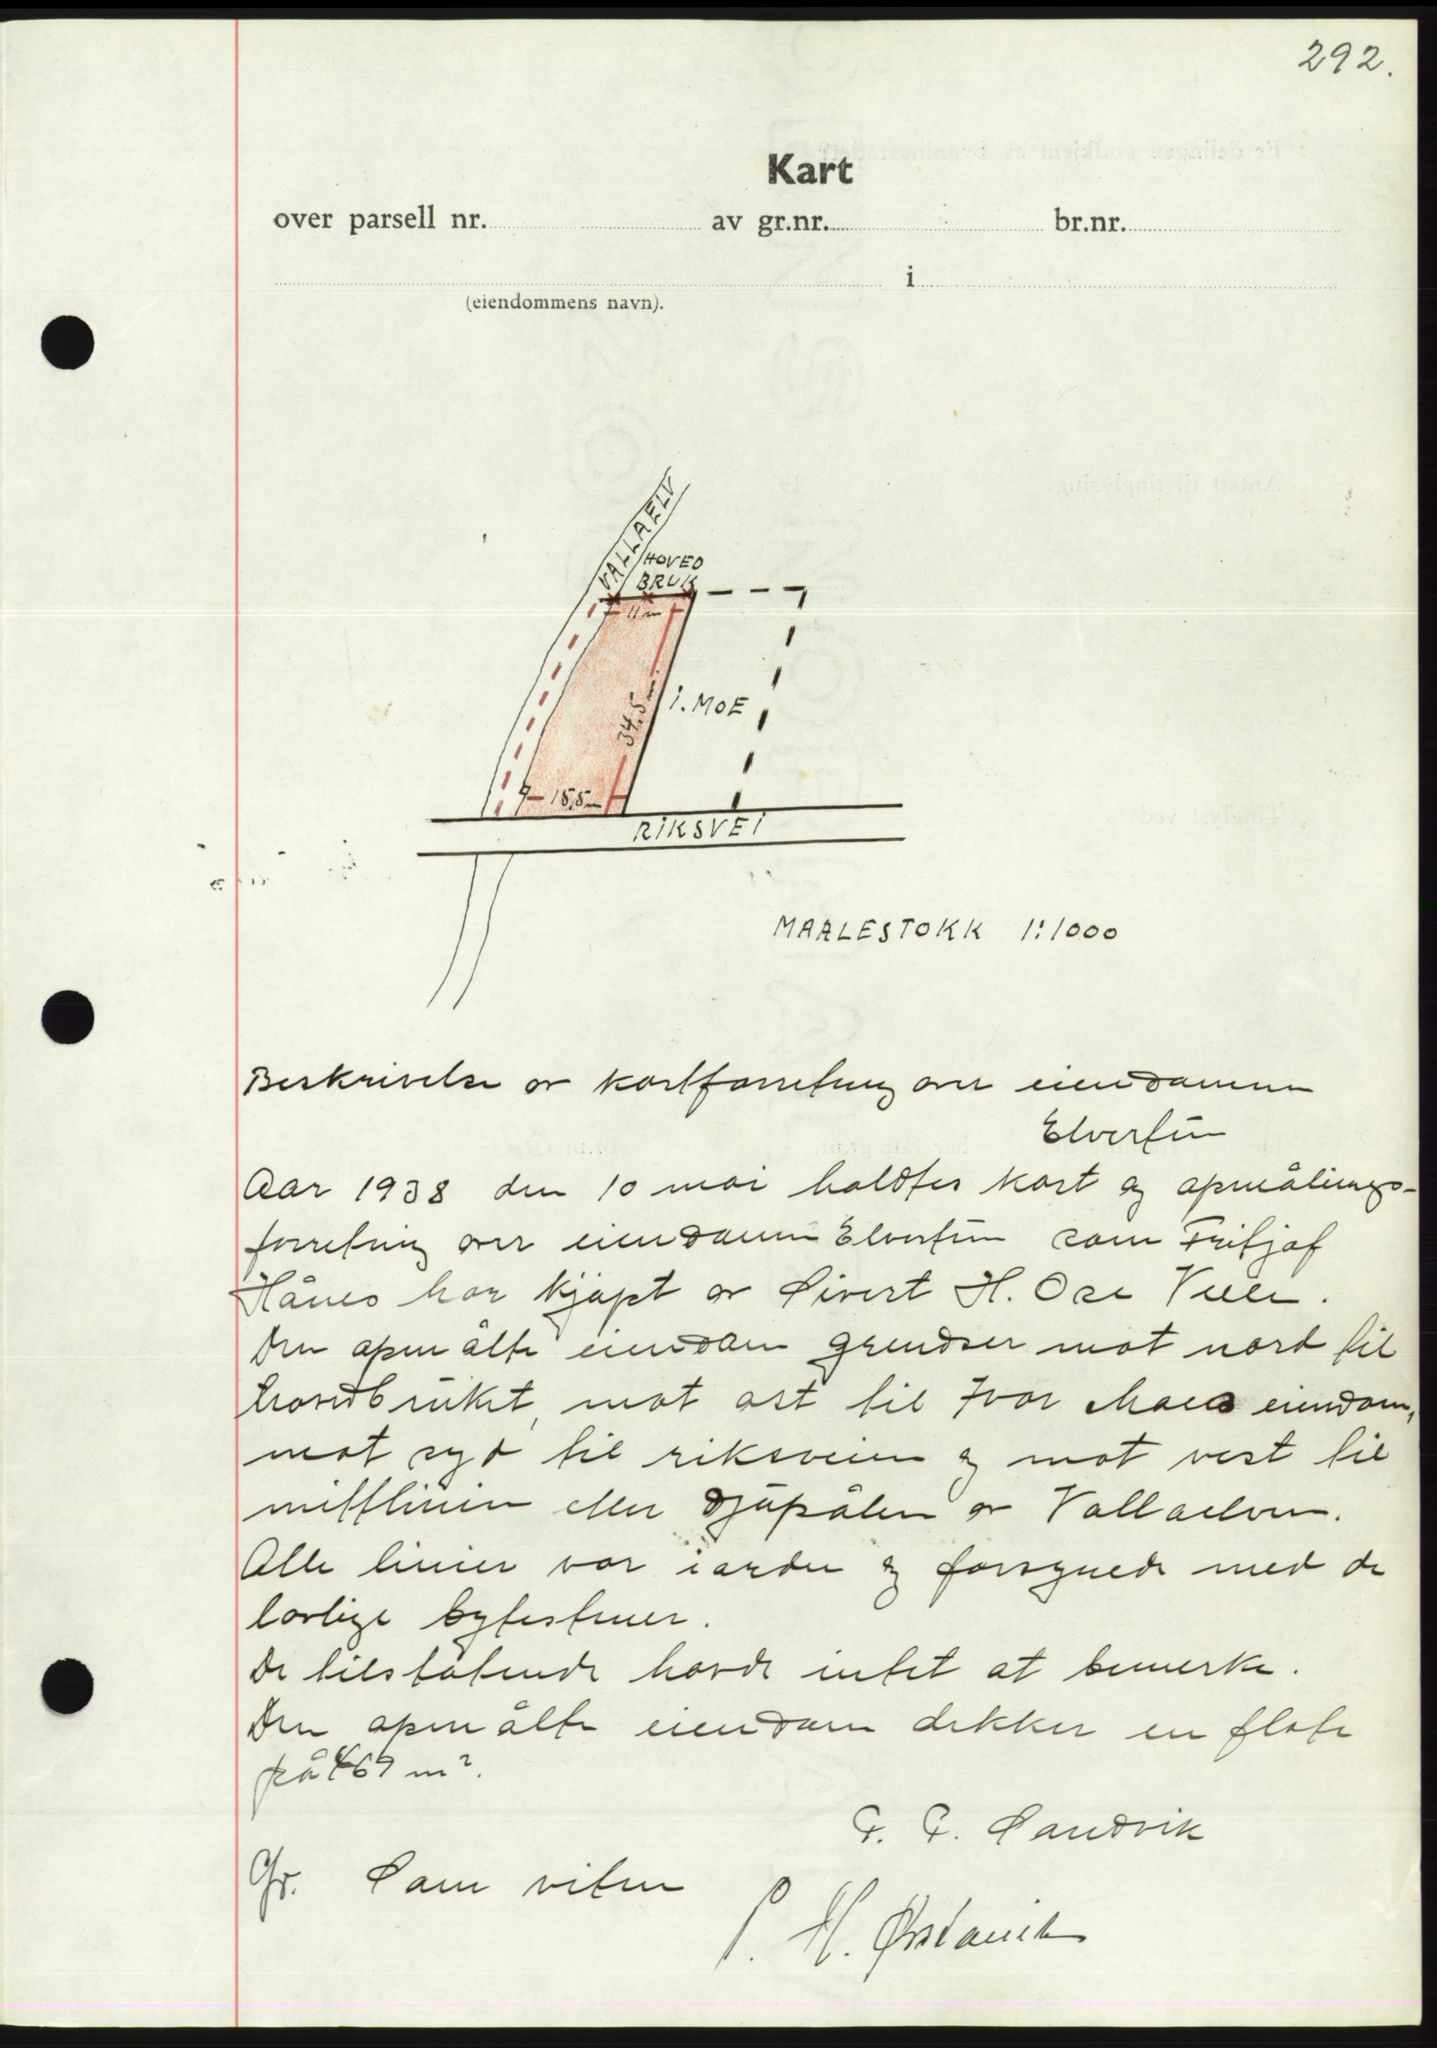 292.
Kart
over parsell nr. av gr.nr. br.nr.
i
(eiendommens navn).
VALLAELV
HOVED
BRUK
11 m
34,5 m.
I. MOE
15,5 m
RIKSVEI
MAALESTOKK 1:1000
Beskrivelse av kartforretning over eiendommen
Elvertun
Aar 1938 den 10 mai holdtes kart og opmålings-
forretning over eiendommen Elvertun som Fritjof
Hånes har kjøpt av Sivert H. Ose
Den opmålte eiendom grendser mot nord til
hovedbruket, mot øst til Ivar Moes eiendom,
mot syd til riksveien og mot vest til
mittlinien eller djupålen av Vallaelven.
Alle linier var i orden og forsynede med de
lovlige bytestener.
De tilstøtende havde intet at bemerke.
Den opmålte eiendom dekker en flate
på 467 m².
P. P. Sandvik
Gr. Som viten
P. H. Ørstavik